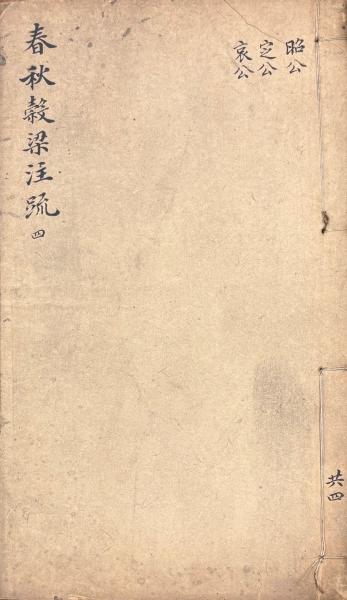 春秋穀梁注疏 四
昭公
定公
哀公
共四